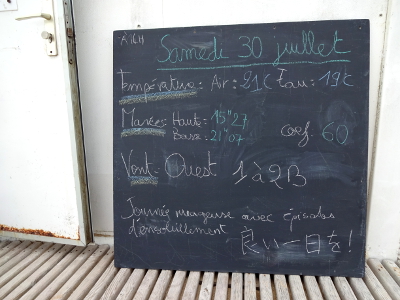 A 16H
Samedi 30 juillet
Température : Air : 21C Eau : 19C
Marées : Haute : 15"27
Basse : 21"07
coef. 60
Vent : Ouest 1 à 2B
Journée nuageuse avec épisodes
d'ensoleillement
良い一日を!